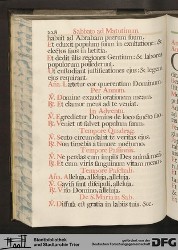 xxx
Sabbato ad Matutinum.
habuit ad Abraham puerum suum.
Et eduxit populum suum in exultatione: &
electos suos in lætitia.
Et dedit illis regiones Gentium: & labores
populorum possiderunt.
Ut custodiant justificationes ejus: & legem
ejus requirant.
Añа. Lætetur cor quærentium Dominum.
Per Annum.
℣. Domine exaudi orationem meam.
℟. Et clamor meus ad te veniat.
In Adventu.
℣. Egredietur Dominus de loco sancto suo.
℟. Veniet ut salvet populum suum.
Tempore Quadrag.
℣. Scuto circumdabit te veritas ejus.
Non timebis a timore nocturno.
Tempore Passionis.
℣. Ne perdas cum impiis Deus animam meã.
℟. Et cum viris sanguinum vitam meam.
Tempore Paschali.
Aña. Alleluja, alleluja, alleluja.
℣. Gavisi sunt discipuli, alleluja.
℟. Viso Domino, alleluja.
De S. Maria in Sab.
℣. Diffusa est gratia in labiis tuis. Sec.
Stadtbibliothek
und Stadtarchiv Trier
gefördert von der
Deutschen Forschungsgemeinschaft
DFG